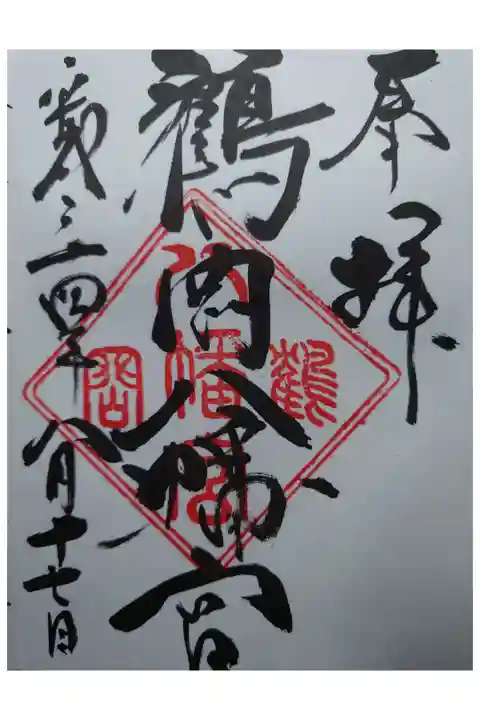 奉拝
鶴岡八幡宮
平成二十四年八月十七日
鶴
八幡宮
岡